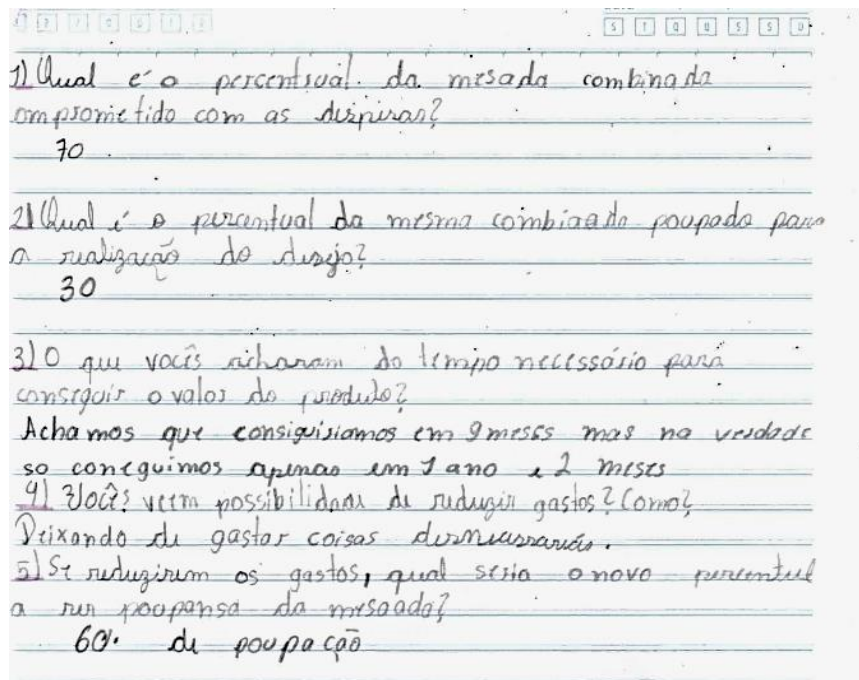 S T Q Q S S D
1) Qual é o percentsual. da mesada combinada
omprometido com as dispisas?
70
2) Qual é o percentual da mesma combiaada poupada para
a realização do desejo?
30
3) O que vocês acharam do tempo necessário para
conseguir o valor do produto?
Achamos que consiguiriamos em 9 meses mas na verdade
so coneguimos apenas em 1 ano e 2 meses
4) Vocês veem possibilidade de reduzir gastos? Como?
Deixando de gastar coisas desnecessarias.
5) Se reduzirem os gastos, qual seria o novo percentul
a ser poupansa da mesaada?
60% de poupação